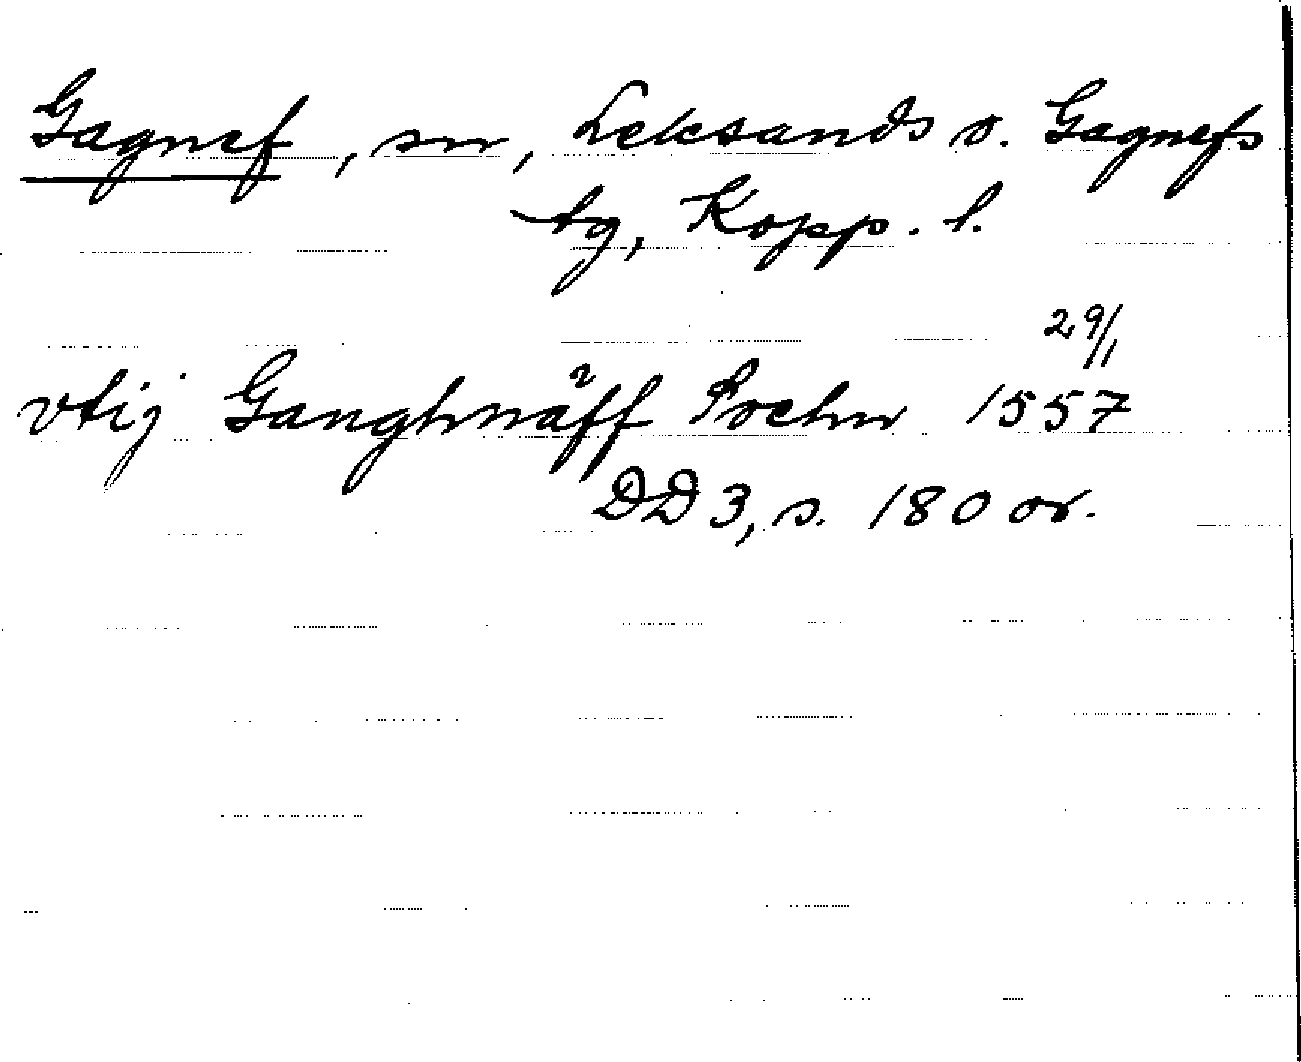 Gagnef, sn, Leksands o. Gagnefs
tg, Kopp. l.
29/1
vtij Ganghnäff Sochn 1557
DD 3, s. 180 or.